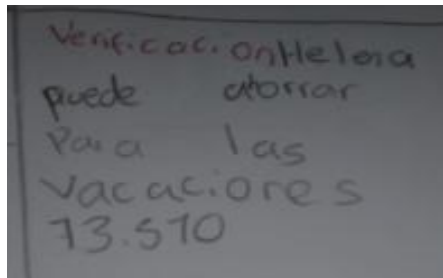 Verificacion Helena
puede ahorrar
Para las
vacaciones
73.510